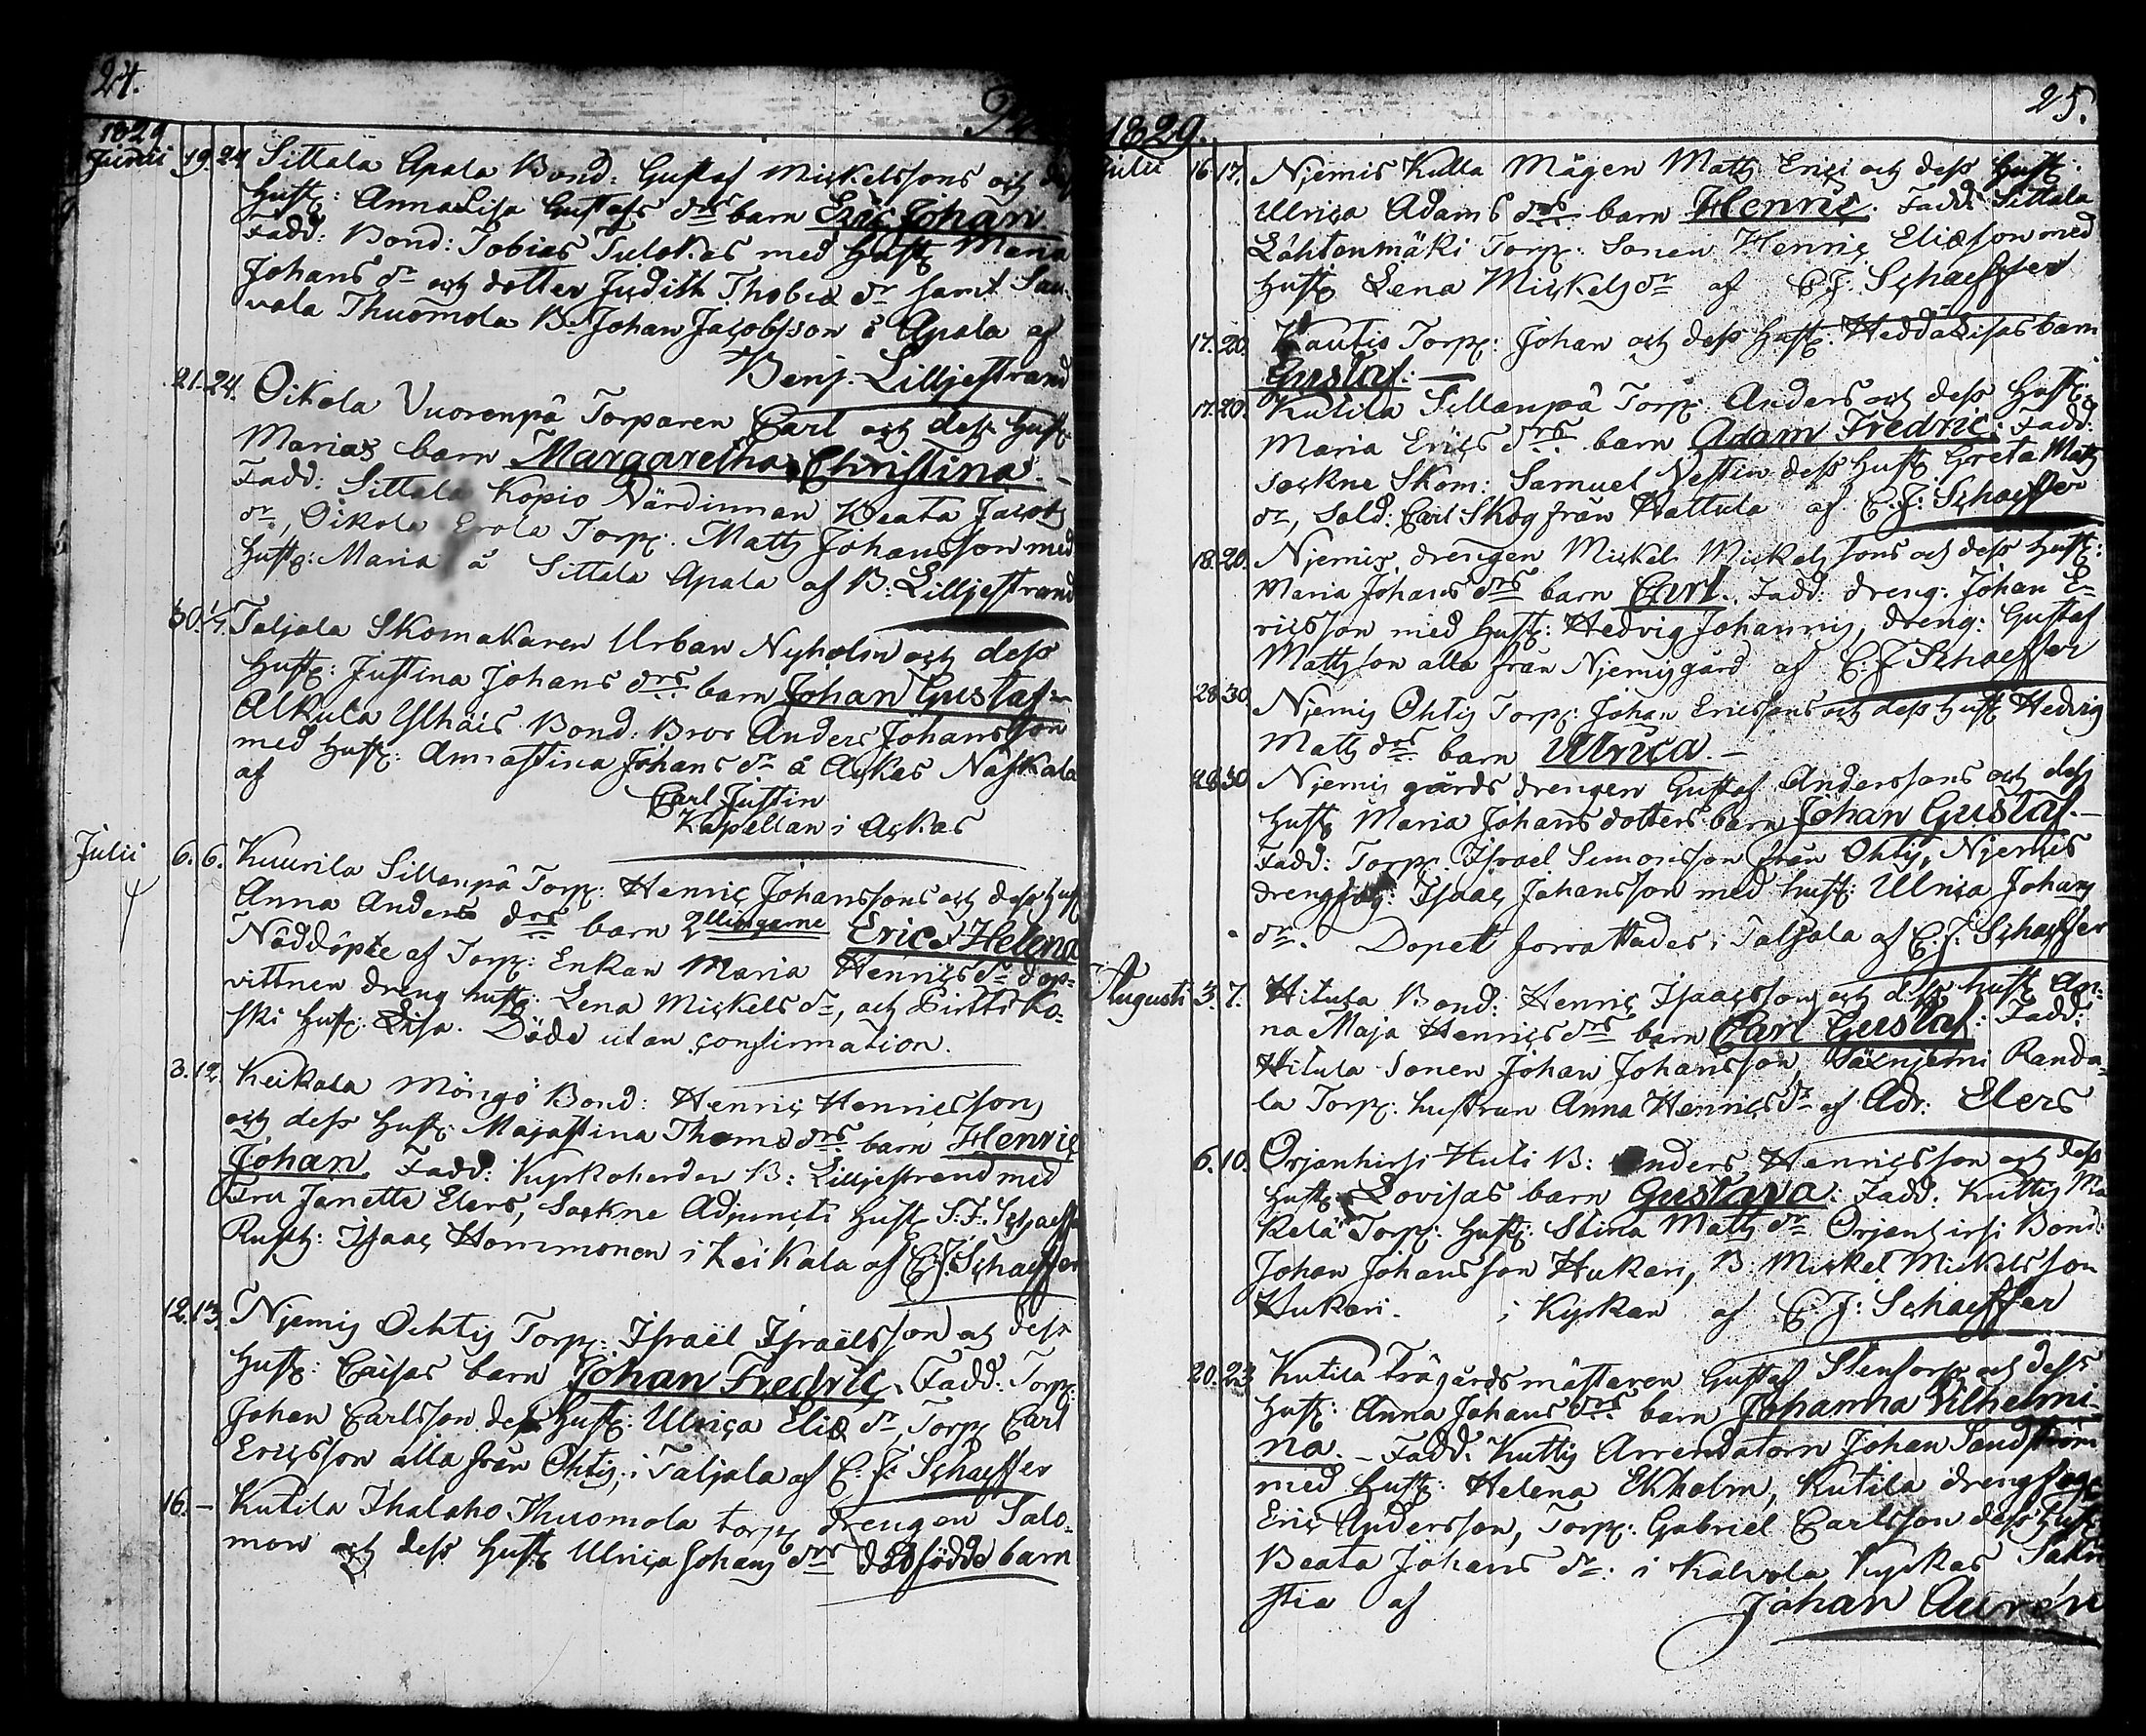 24.
1829
Junii 19. 24 Sittala Apala Bond: Gustaf Mickelssons och dess
Hust: AnnaLisa Gustafs drs barn Eric Johan.
Fadd: Bond: Tobias Tulokas med Hust Maria
Johans dr och dotter Judith Thobiæ dr samt Sau-
vala Thuomola B. Johan Jacobsson å Apala af
Benj. Lilljestrand
21. 24. Oikola Vuorenpä Torparen Carl och dess Hust
Marias barn Margaretha Christina. -
Fadd: Sittala Kopio Värdinnan Beata Jacobs
dr, Oikola Erola Torp: Matts Johansson med
Hust: Maria å Sittala Apala af B: Lilljestrand
30. 1/7. Taljala Skomakaren Urban Nyholm och dess
Hust: Justina Johans drs barn Johan Gustaf -
Alkula Ylhäis Bond: Bror Anders Johansson
med Hust: Annastina Johans dr å Ackas Naskala
af Carl Justin
Kapellan i Ackas
Julii 6. 6. Kuurila Sillanpä Torp: Henric Johanssons och dess Hust
Anna Anders drs barn 2 llingarne Eric & Helena
Nöddöpte af Torp: Enkan Maria Henrics dr dop-
vittnen dreng hust: Lena Mickels dr, och Pirtti Ko-
ski Hust: Lisa. Döde utan confirmation.
3. 12. Keikala Möngö Bond: Henric Henricsson
och dess Hust: Majastina Thoms drs barn Henric
Johan. Fadd: Kyrkoherden B: Lilljestrand med
Fru Janette Elers, Sockne Adjuncts Hust S.F. Schaeffer
Rusth: Isaac Hommonen i Keikala af C.J. Schaeffer
12. 13. Njemis Ochtis Torp: Israël Israëlsson och dess
Hust: Caisas barn Johan Fredric. Fadd: Torp:
Johan Carlsson dess Hust: Ulrica Eliæ dr, Torp Carl
Ericsson alla från Ohtis, i Taljala af C. J. Schaeffer
16. - Kutila Ihalaho Thuomola torp drengen Salo-
mon och dess Hust: Ulrica Johans drs dödfödde barn
25.
1829.
Julii 16. 17. Njemis Kulla Mågen Matts Erici och dess Hust:
Ulrica Adams drs barn Henric. Fadd: Sittala
Lähtenmäki Torp: Sonen Henric Eliæson med
Hust Lena Mickels dr af C J. Schaeffer
17. 20. Kautis Torp: Johan och dess Hust: HeddaLisas barn
Gustaf. -
17. 20. Kutila Sillanpä Torp: Anders och dess Hust:
Maria Erics drs barn Adam Fredric. Fadd:
Sockne Skom: Samuel Nestin dess Hust Greta Matts
dr, Sold: Carl Skog från Hattula af C. J: Schaeffer
18. 20. Njemis, drengen Mickel Mickelssons och dess Hust:
Maria Johans drs barn Carl. Fadd: dreng: Johan E-
ricsson med Hust: Hedvig Johannis, dreng: Gustaf
Mattsson alla från Njemisgård af C. J Schaeffer
28. 30. Njemis Ohtis Torp: Johan Ericssons och dess Hust Hedvig
Matts drs barn Ulrica. -
28. 30 Njemis gårds drengen Gustaf Anderssons och dess
Hust Maria Johans dotters barn Johan Gustaf. -
Fadd: Torp: Israel Simonsson från Ohtis, Njemis
drengfog: Isaac Johansson med hust: Ulrica Johans
dr. Dopet förrättades i Taljala af C. J: Schaeffer
Augusti 3. 7. Hitula Bond: Henric Isaacsson och dess hust An-
na Maja Henrics drs barn Carl Gustaf. Fadd:
Hitula Sonen Johan Johansson, Säxnjemi Randa-
la Torp: hustrun Anna Henrics dr af Adr: Elers
6. 10. Orjanhirsi Huti B: Anders Henricsson och dess
Hust Lovisas barn Gustava. Fadd: Kuttis Mä
kelä Torp: Hust: Stina Matts dr Orjanhirsi Bond:
Johan Johansson Hukari, B: Mickel Mickelsson
Hukari. i Kyrkan af C. J: Schaeffer
20. 23 Kutila Trägårdsmästaren Gustaf Stentorp och dess
Hust: Anna Johans drs barn Johanna Vilhelmi-
na. - Fadd: Kuttis Arrendatorn Johan Sandström
med Hust: Helena Ekholm, Kutila drengfogd
Eric Andersson, Torp: Gabriel Carlsson dess Hust
Beata Johans dr. i Kalvola Kyrkas Sakri
stia af Johan Aurén